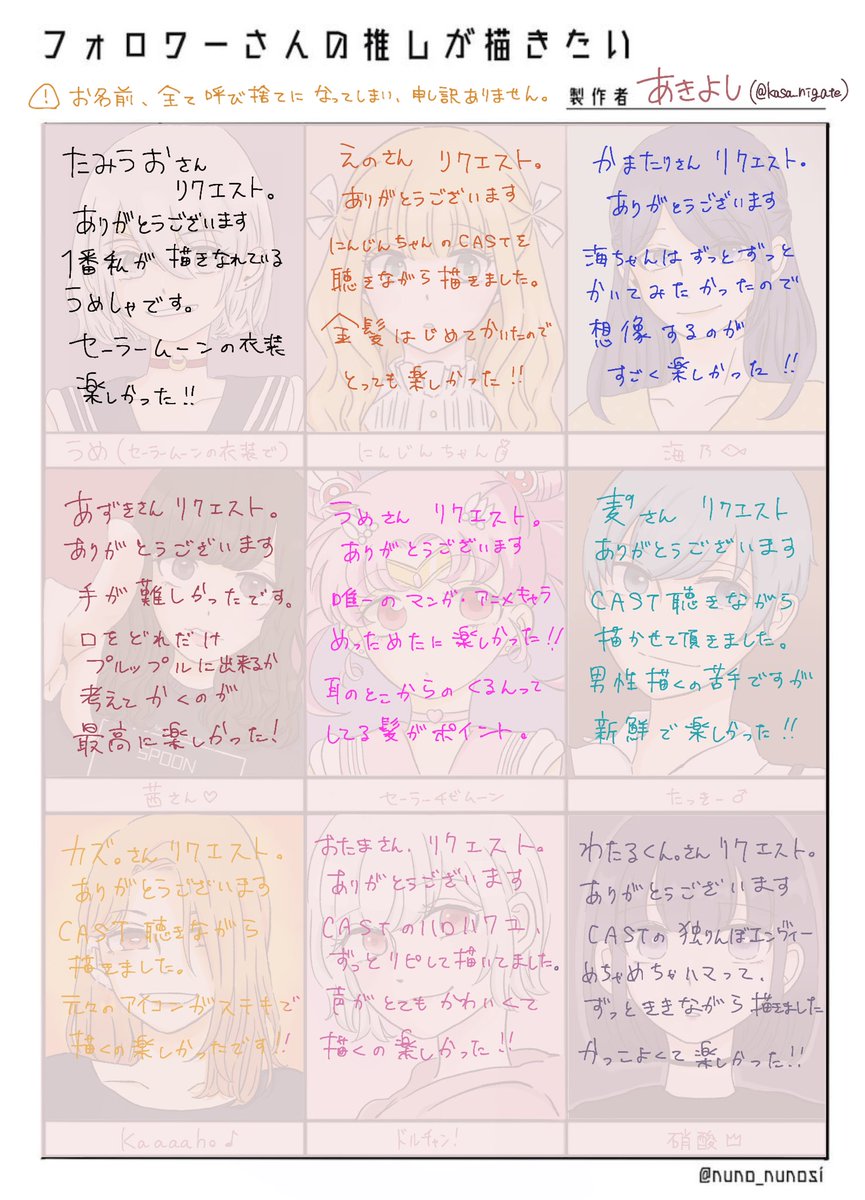 フォロワーさんの推しが描きたい
! お名前、全て呼び捨てになってしまい、申し訳ありません。
製作者 あきよし(@kasa_nigate)
たみうおさん
リクエスト。
ありがとうございます
1番私が描きなれている
うめしゃです。
セーラームーンの衣装
楽しかった!!
うめ(セーラームーンの衣装で)
えのさん リクエスト。
ありがとうございます
にんじんちゃんのCASTを
聴きながら描きました。
金髪はじめてかいたので
とっても楽しかった!!
にんじんちゃん
かまたりさん リクエスト。
ありがとうございます
海ちゃんはずっとずっと
かいてみたかったので
想像するのが
すごく楽しかった!!
海乃
あずきさん リクエスト。
ありがとうございます
手が難しかったです。
口をどれだけ
プルップルに出来るか
考えてかくのが
最高に楽しかった!
SPOON
茜さん♡
うめさん リクエスト。
ありがとうございます
唯一のマンガ・アニメキャラ
めっためたに楽しかった!!
耳のとこからのくるんって
してる髪がポイント。
セーラーチビムーン
麦さん リクエスト
ありがとうございます
CAST聴きながら
描かせて頂きました。
男性描くの苦手ですが
新鮮で楽しかった!!
たっきー♂
カズ。さん リクエスト。
ありがとうございます
CAST聴きながら
描きました。
元々のアイコンがステキで
描くの楽しかったです!!
Kaaaaho♪
おたまさん、リクエスト。
ありがとうございます
CASTのハロハワユ、
ずっとリピして描いてました。
声がとてもかわいくて
描くの楽しかった!!
ドルチャン!
わたるくん。さん リクエスト。
ありがとうございます
CASTの独りんぼエンヴィー
めちゃめちゃハマって、
ずっとききながら描きました
かっこよくて楽しかった!!
硝酸
@nuno_nunosi